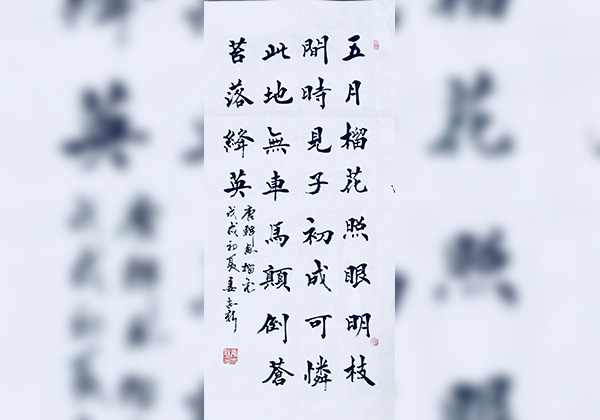 五月榴花照眼明枝
間時見子初成可憐
此地無車馬顛倒蒼
苔落絳英
唐韓愈榴花
戊戌初夏姜志